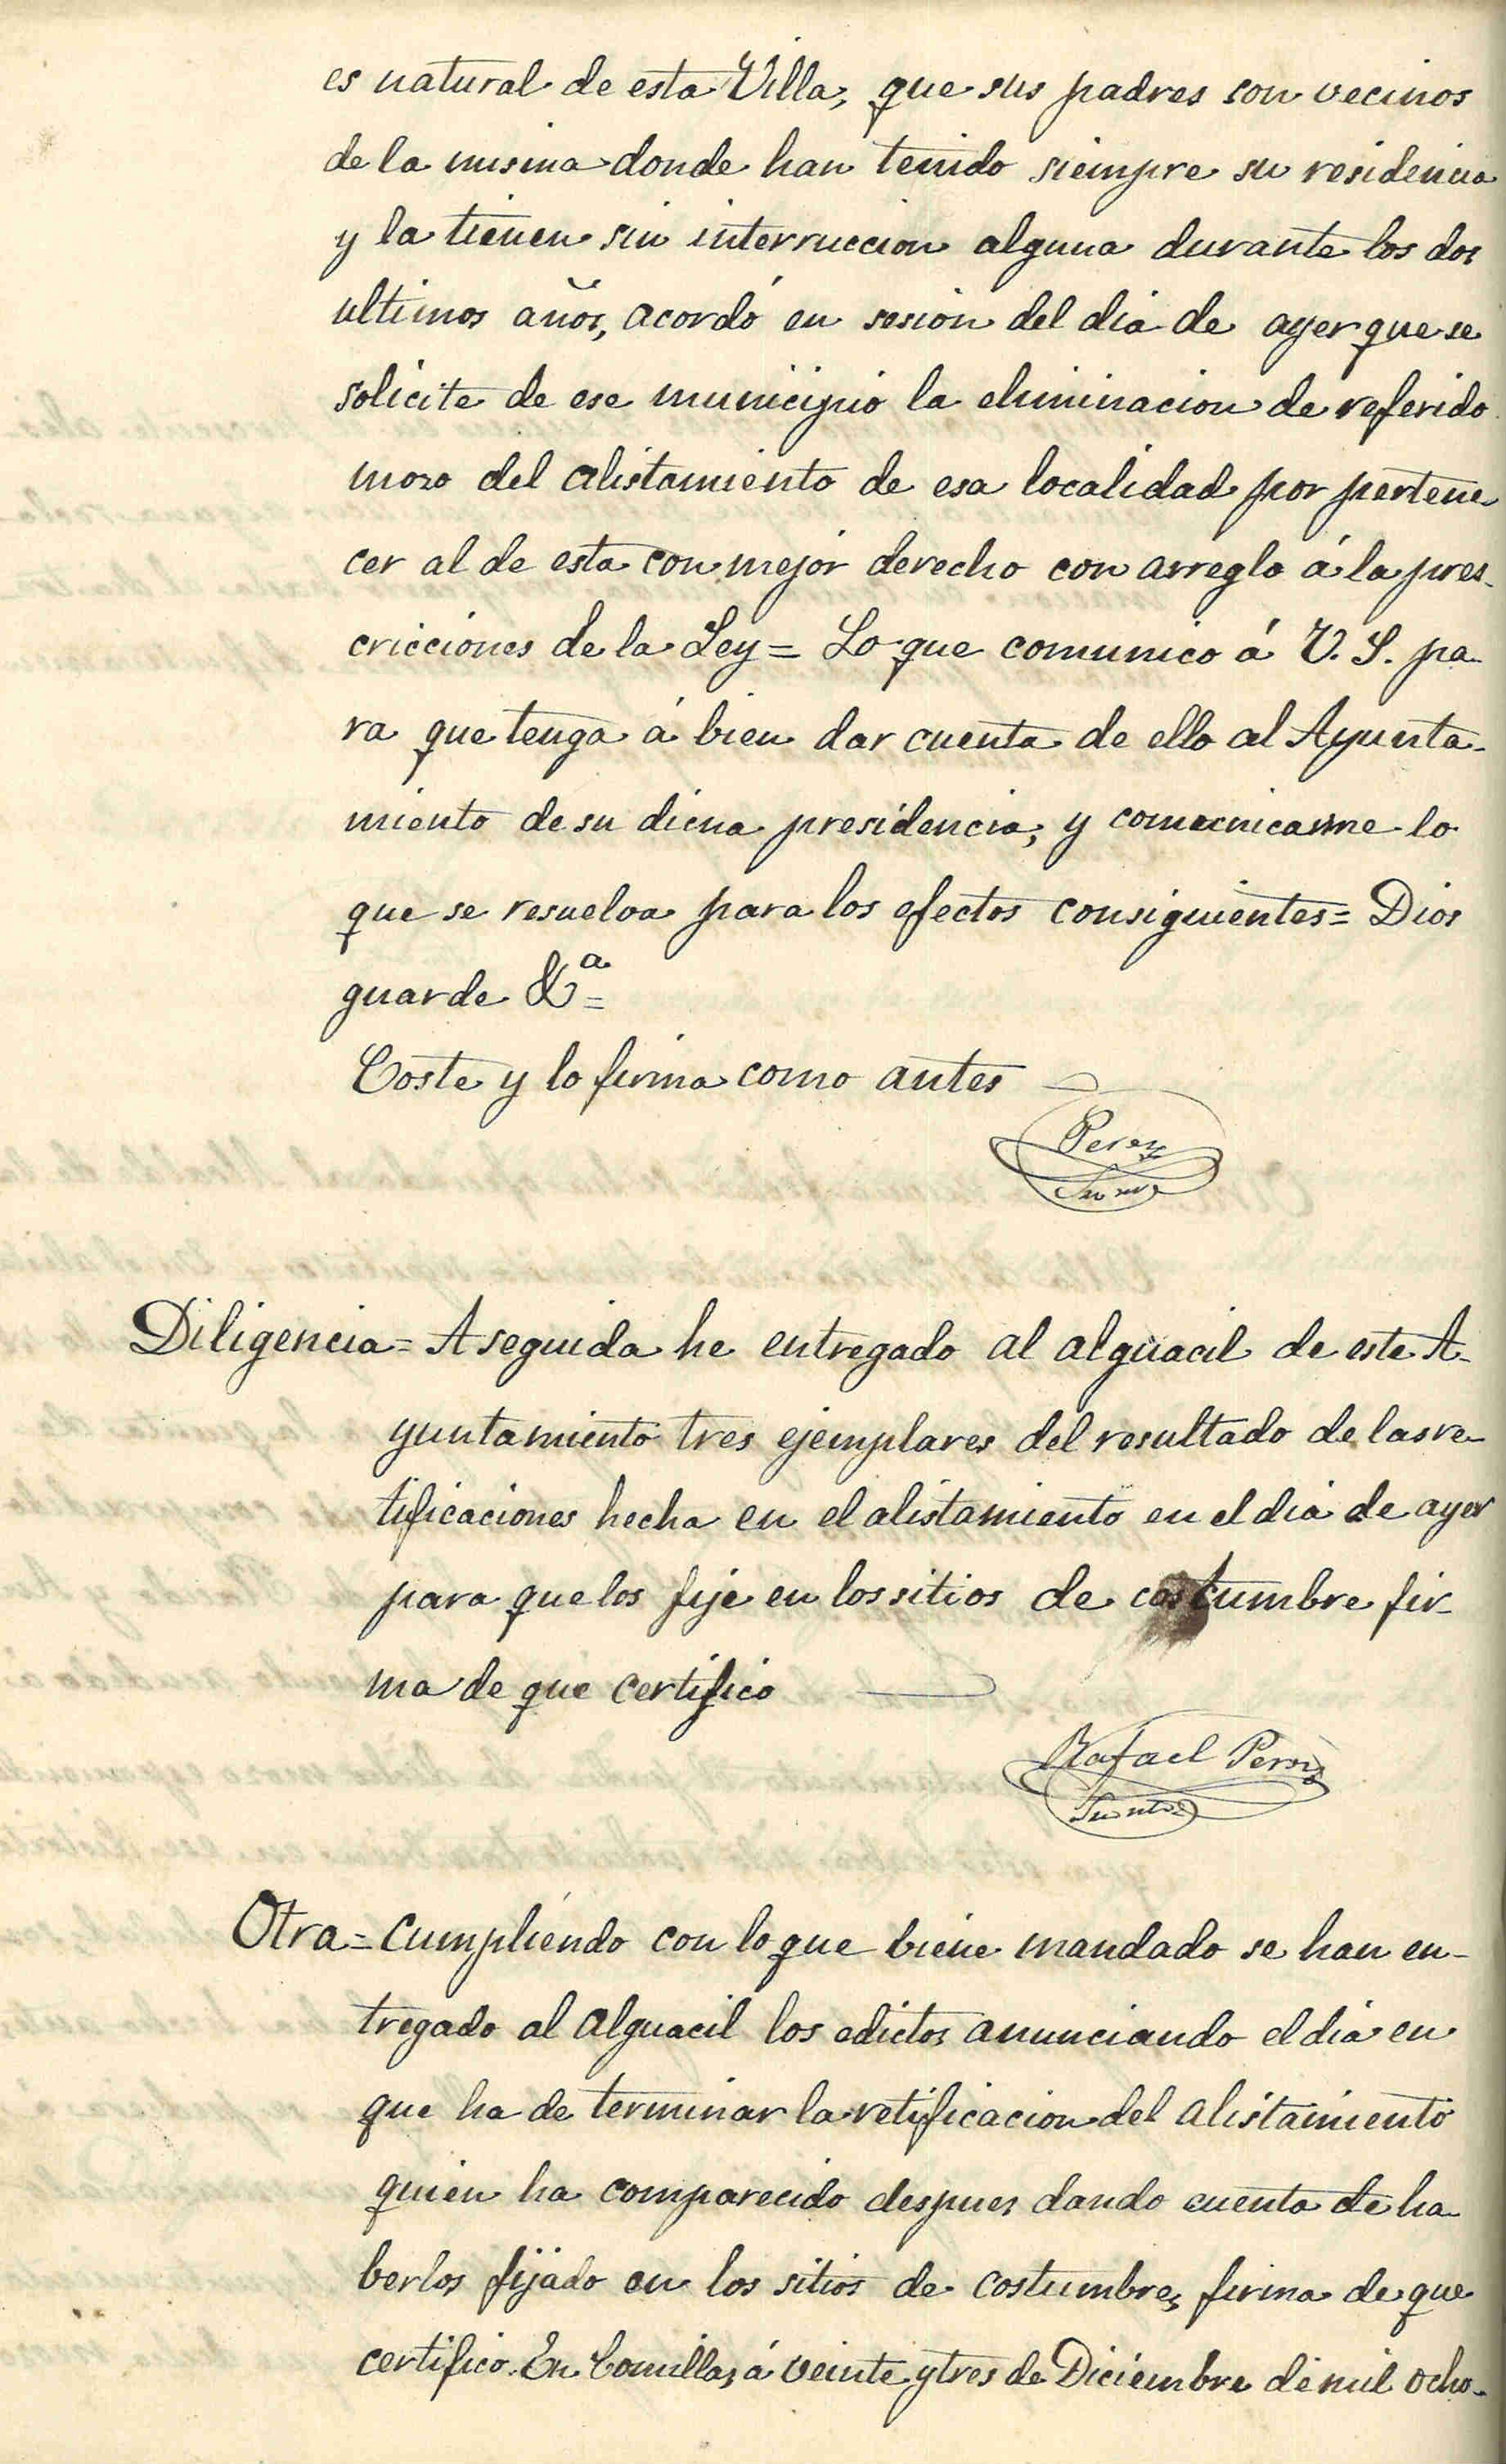 es natural de esta Villa, que sus padres son vecinos
de la misma donde han tenido siempre su residencia
y la tienen sin interruccion alguna durante los dos
ultimos años, acordó en sesion del dia de ayer que se
solicite de ese municipio la eliminacion de referido
mozo del alistamiento de esa localidad por pertene-
cer al de esta con mejor derecho con arreglo á la pres-
cricciones de la Ley= Lo que comunico á V. S. pa-
ra que tenga á bien dar cuenta de ello al Ayunta-
miento de su diena presidencia, y comunicarme lo
que se resuelva para los efectos consiguientes= Dios
guarde &ª=
Coste y lo firma como antes
Perez
Diligencia= A seguida he entregado al alguacil de este A-
yuntamiento tres ejemplares del resultado de las re-
tificaciones hecha en el alistamiento en el dia de ayer
para que los fije en los sitios de costumbre fir-
ma de que certifico
Rafael Perez
Otra= Cumpliendo con lo que biene mandado se han en-
tregado al alguacil los edictos anunciando el dia en
que ha de terminar la retificacion del alistamiento
quien ha comparecido despues dando cuenta de ha-
berlos fijado en los sitios de costumbre, firma de que
certifico. En Comillas á veinte y tres de Diciembre de mil ocho-